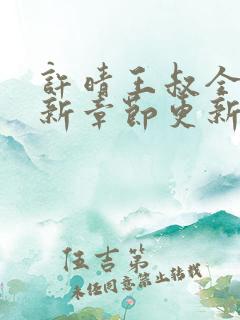 許晴王叔全
新章節更新
伍吉第
未任同意禁止转载